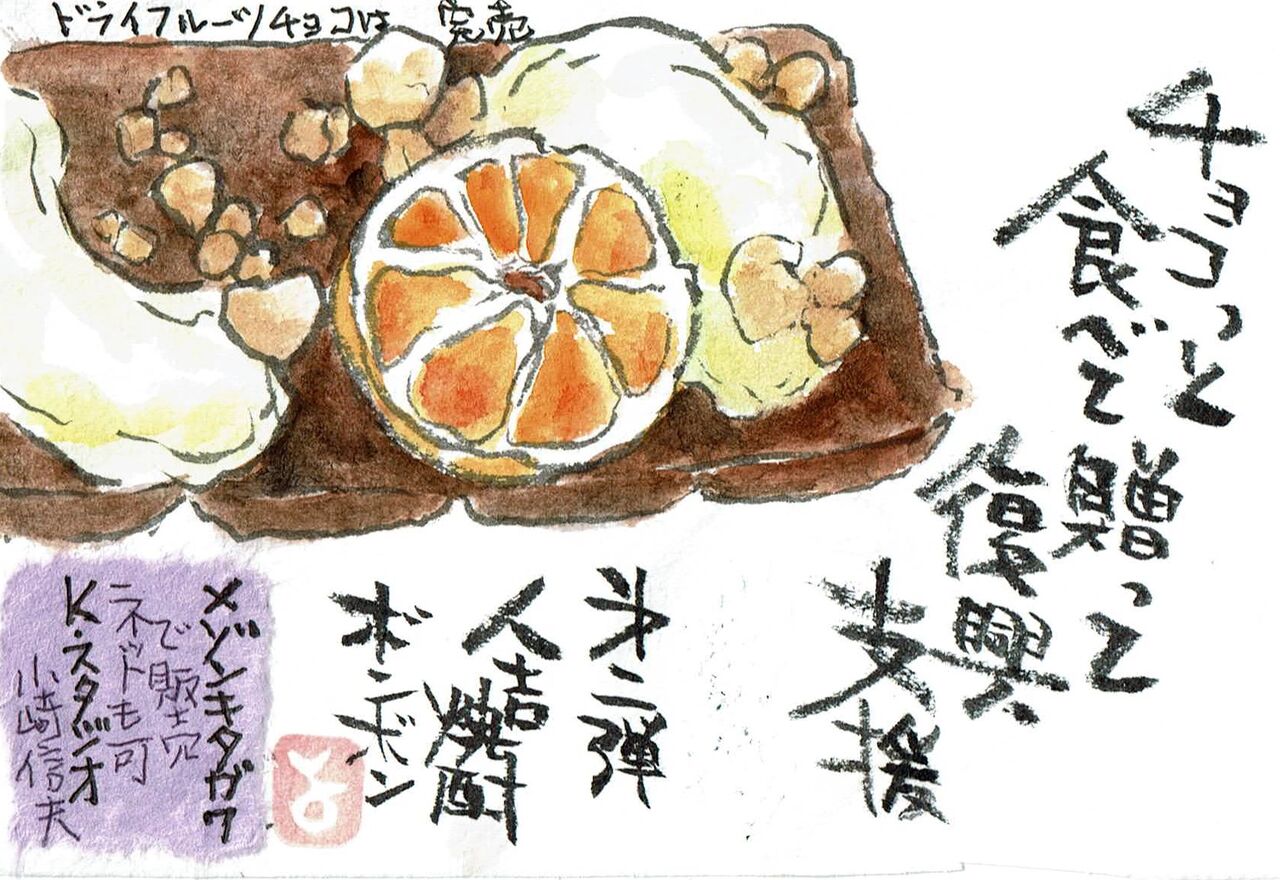 ドライフルーツチョコは 完売
チョコっと
食べて贈って
復興
支援
㐧二弾
人吉焼酎
ボンボン
メゾンキタガワ
で販売
ネットも可
K・スタジオ
小崎信夫
よ